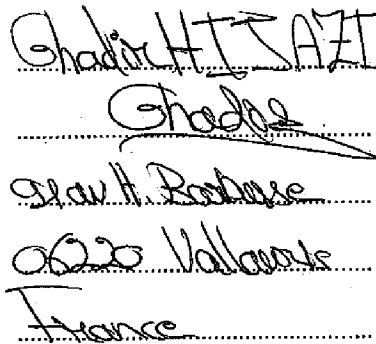 Ghadir HIJAZI
Ghada
91 av H. Barbusse
06220 Vallauris
France